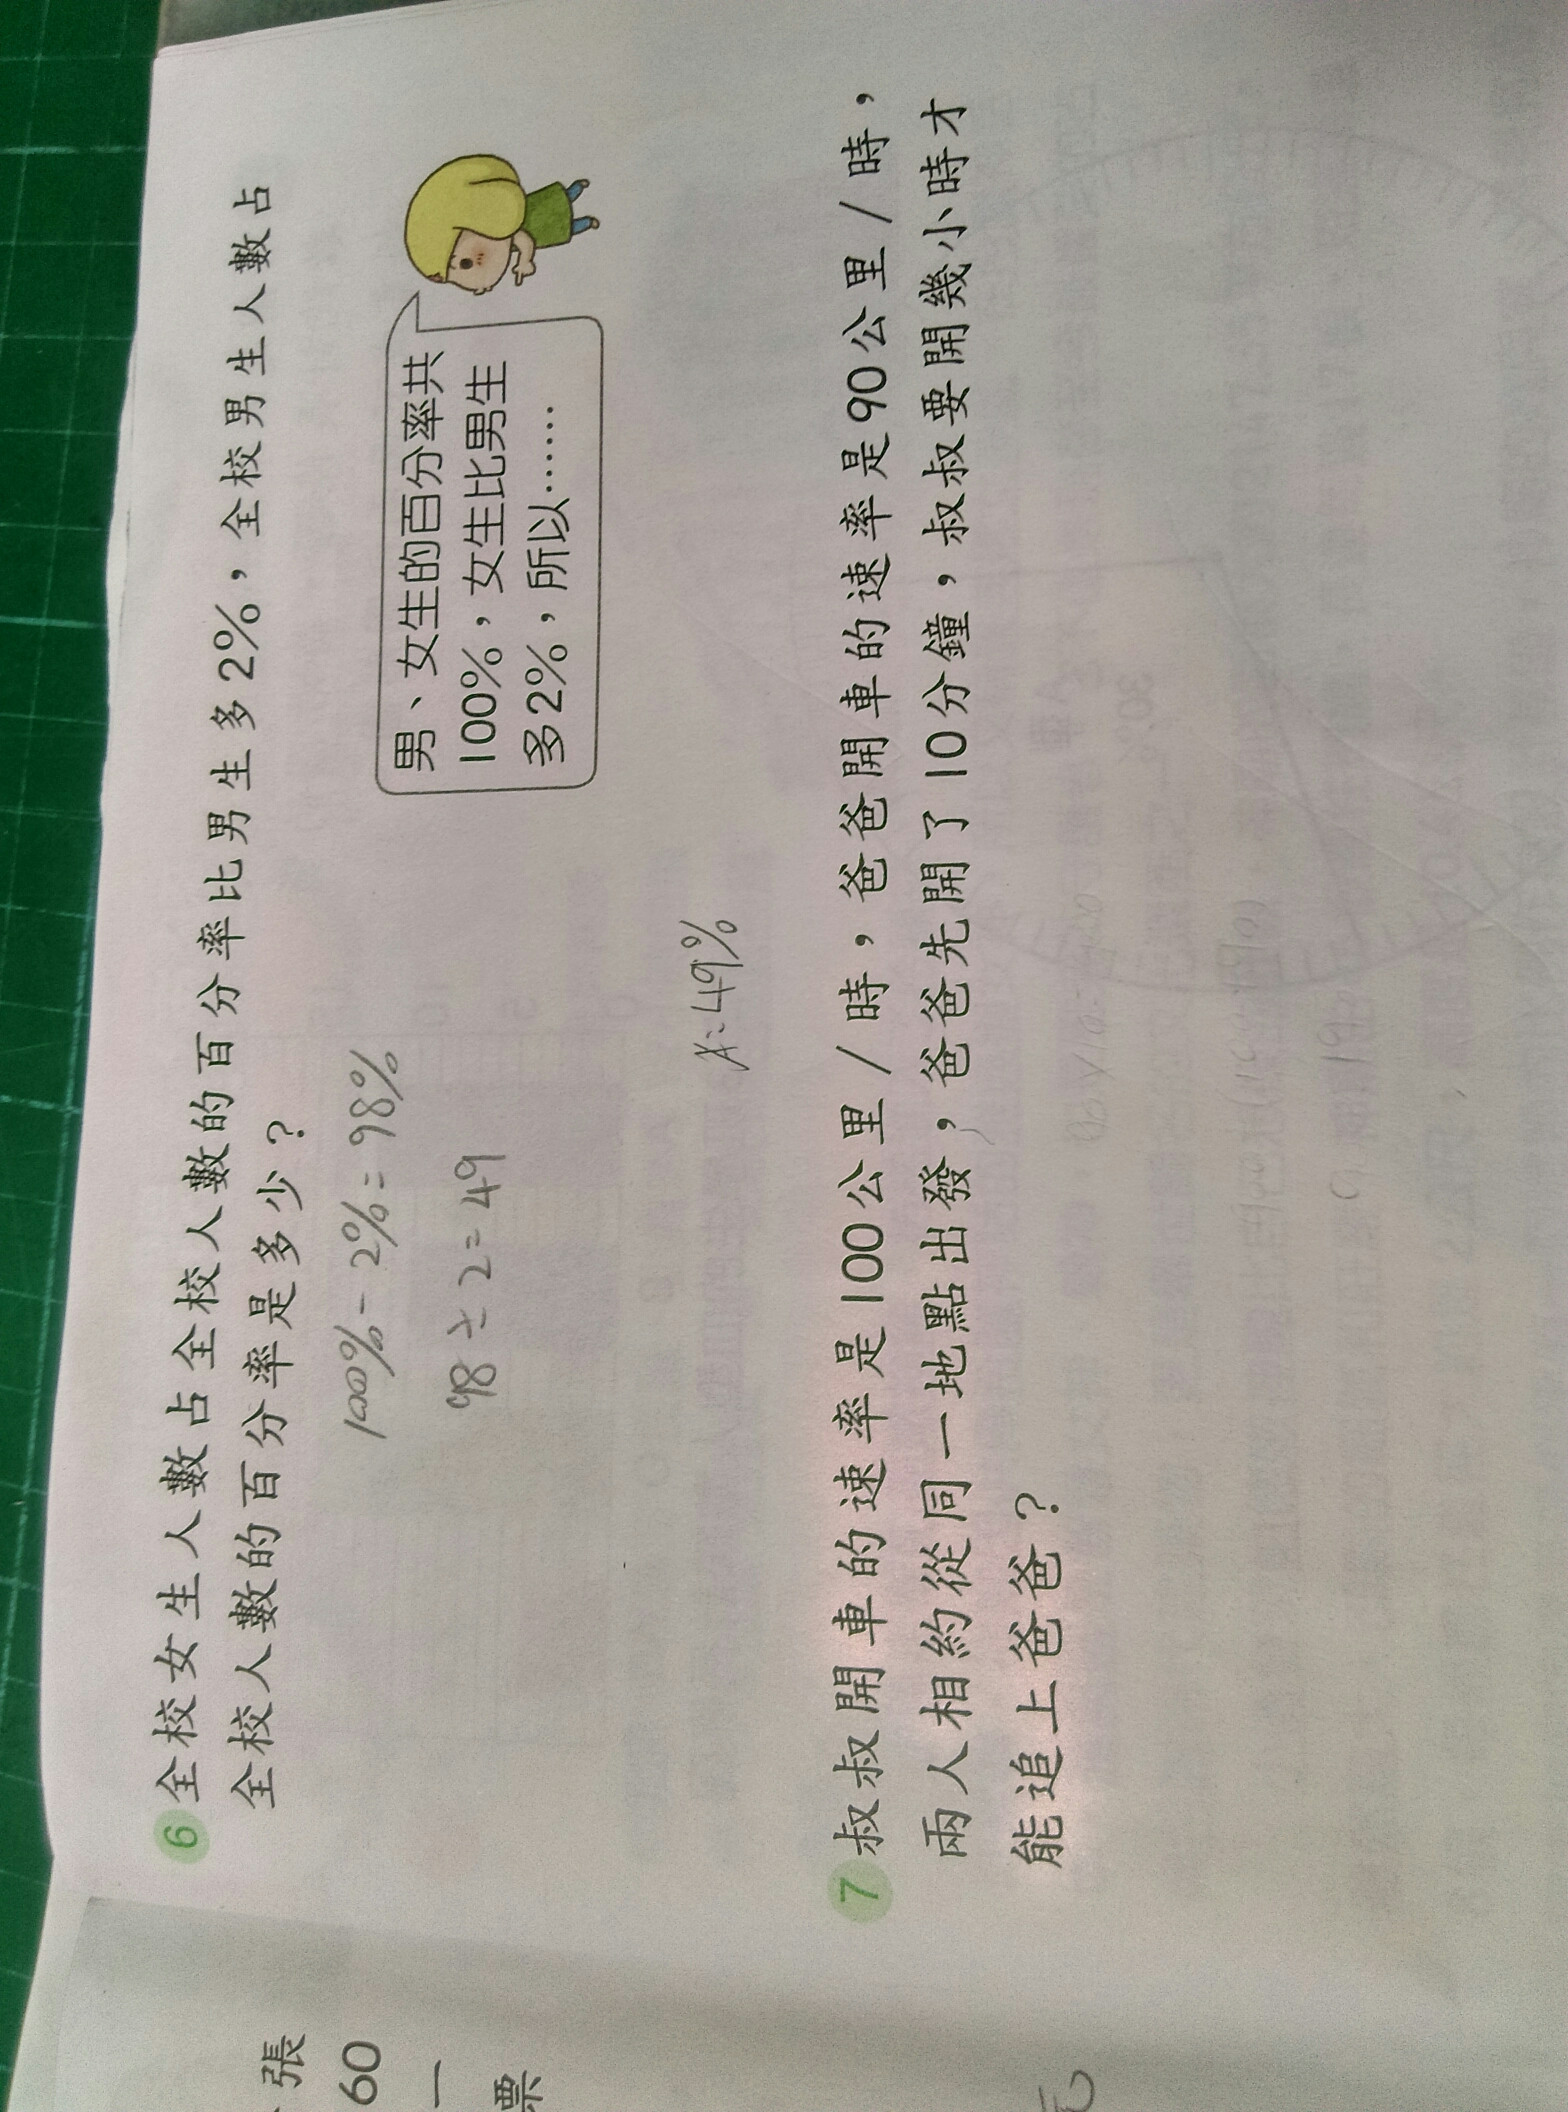 6 全校女生人數占全校人數的百分率比男生多2%，全校男生人數占
全校人數的百分率是多少？
男、女生的百分率共
100%，女生比男生
多2%，所以……
100%-2%=98%
98÷2=49
A:49%
7 叔叔開車的速率是100公里／時，爸爸開車的速率是90公里／時，
兩人相約從同一地點出發，爸爸先開了10分鐘，叔叔要開幾小時才
能追上爸爸？
張
60
一
票
元